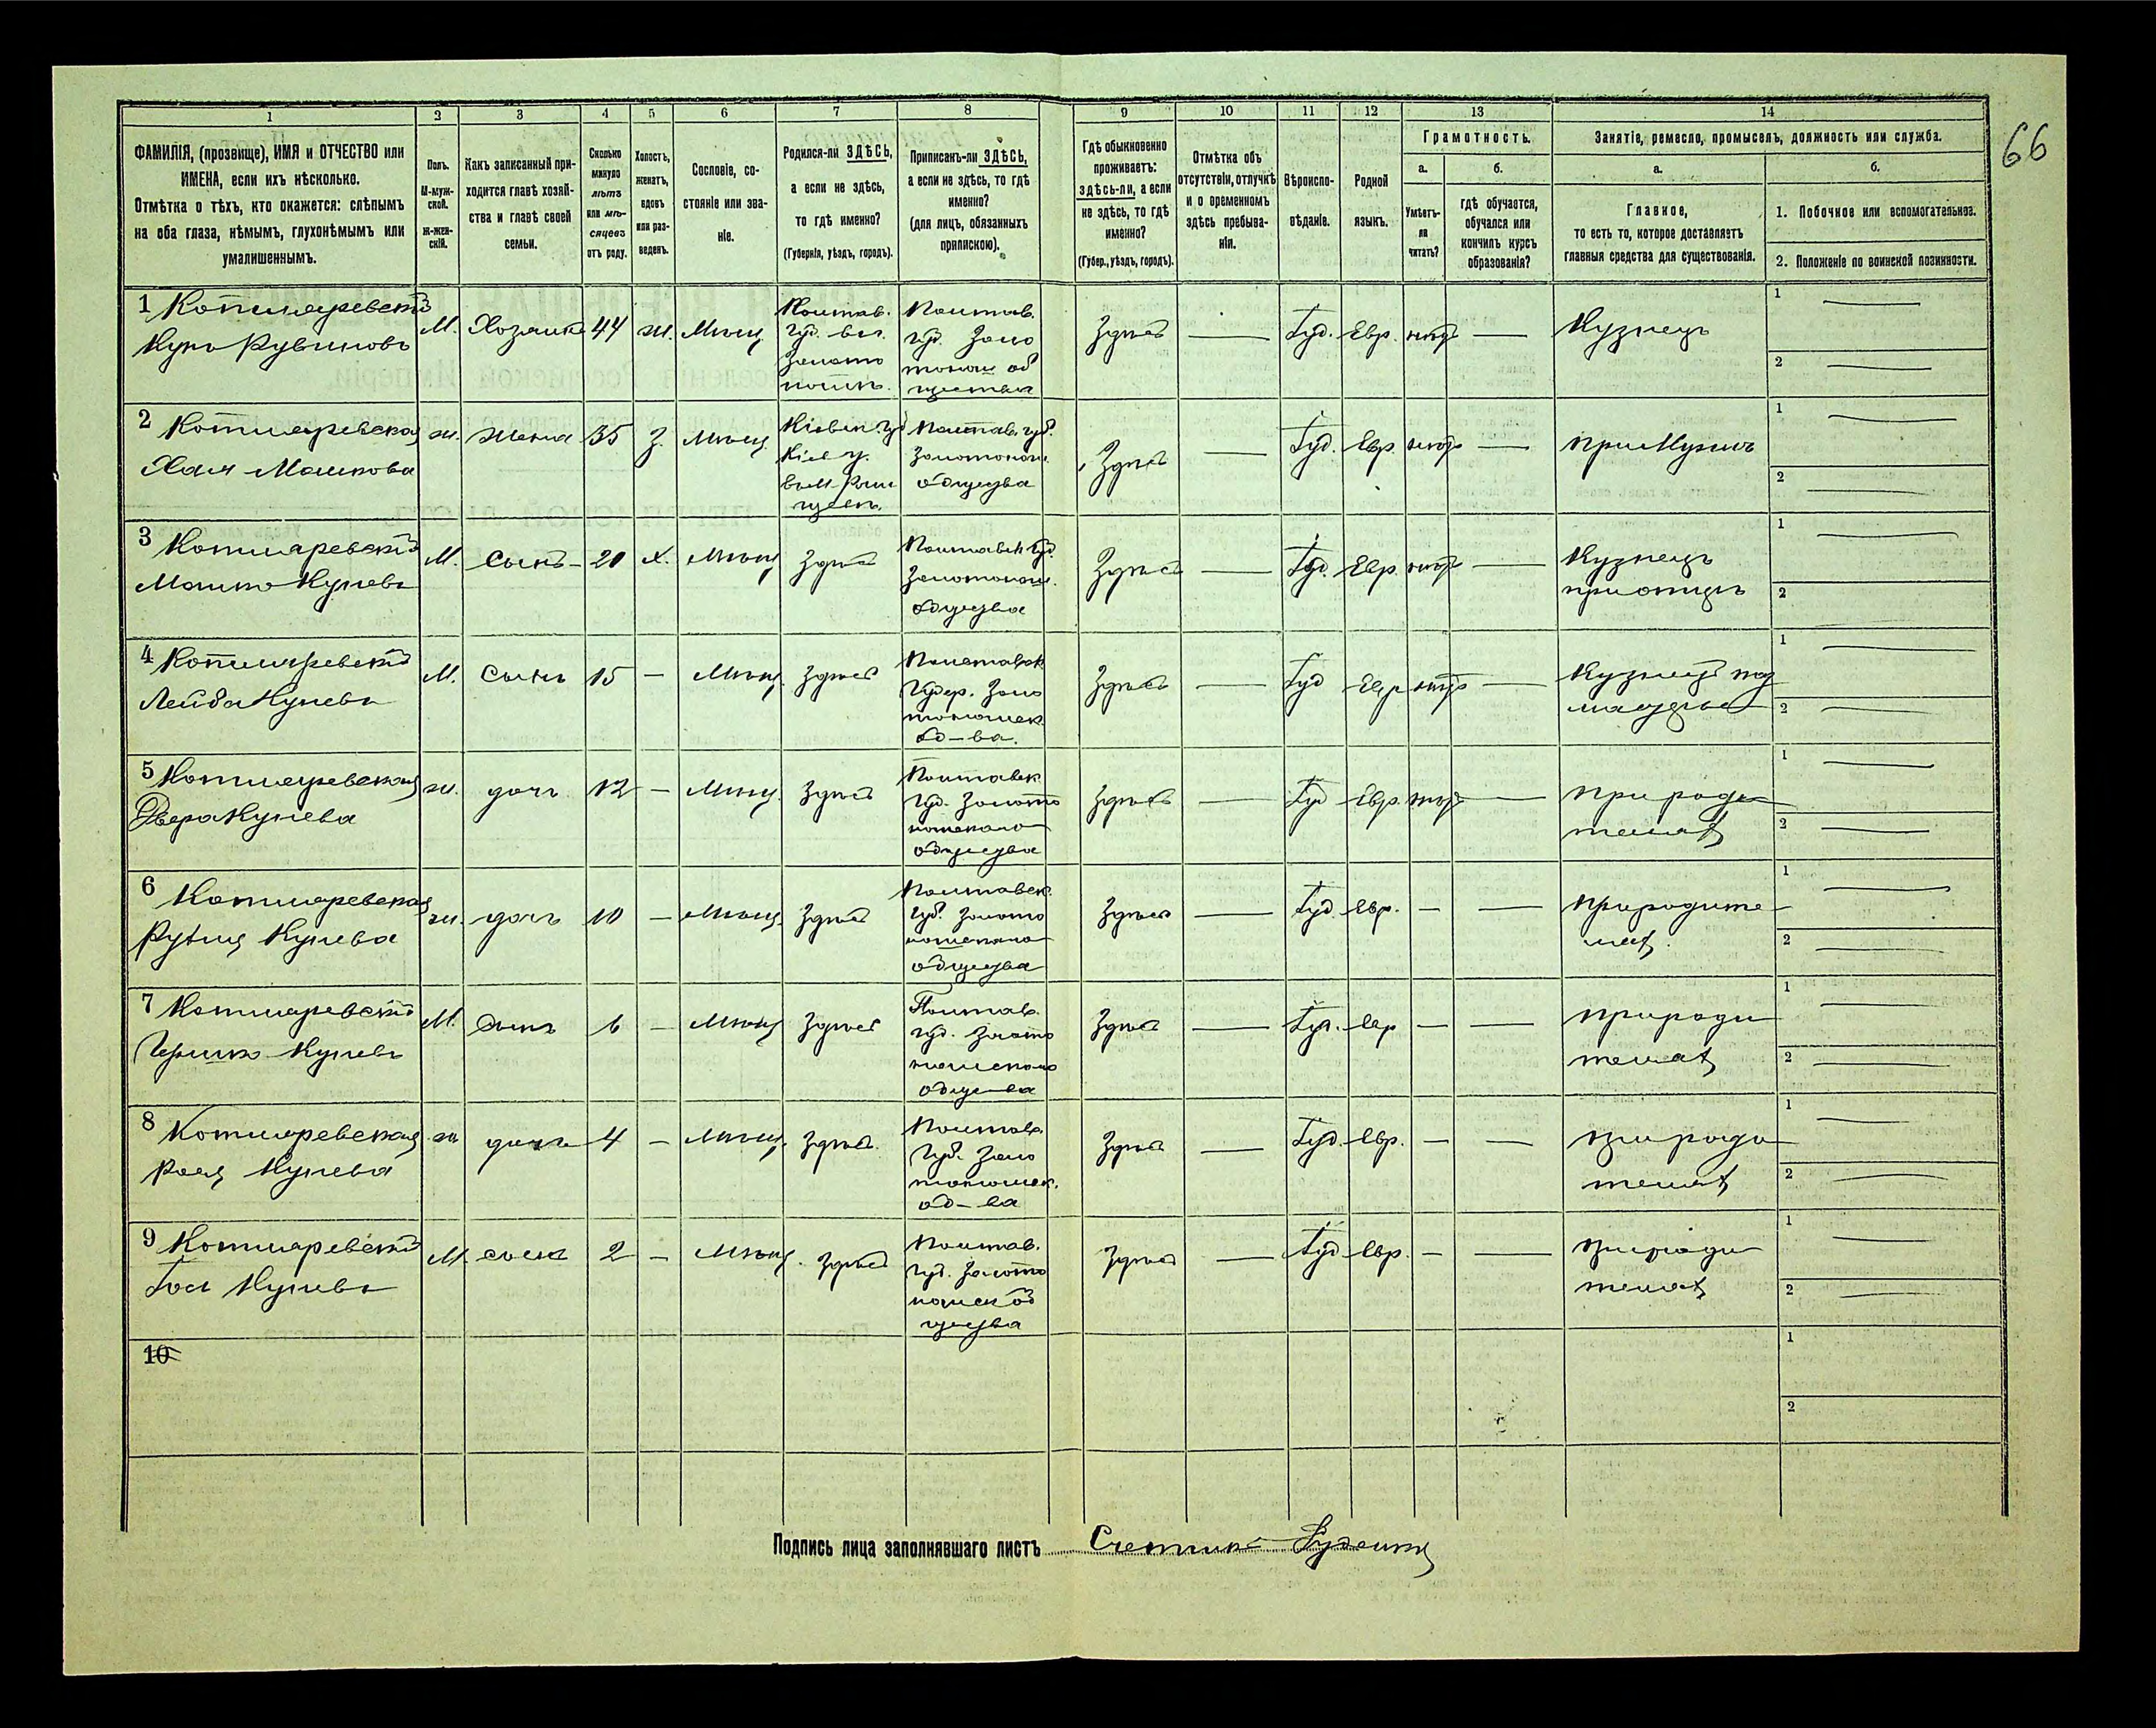 66
1 2 3 4 5 6 7 8 9 10 11 12 13 14
ФАМИЛІЯ, (прозвище), ИМЯ и ОТЧЕСТВО или
ИМЕНА, если ихъ нѣсколько.
Отмѣтка о тѣхъ, кто окажется: слѣпымъ
на оба глаза, нѣмымъ, глухонѣмымъ или
умалишеннымъ.
Полъ.
М-муж-
ской.
Ж-жен-
скій.
Какъ записанный при-
ходится главѣ хозяй-
ства и главѣ своей
семьи.
Сколько
минуло
лѣтъ
или мѣ-
сяцевъ
отъ роду.
Холостъ,
женатъ,
вдовъ
или раз-
веденъ.
Сословіе, со-
стояніе или зва-
ніе.
Родился-ли ЗДѢСЬ,
а если не здѣсь,
то гдѣ именно?
(Губернія, уѣздъ, городъ).
Приписанъ-ли ЗДѢСЬ,
а если не здѣсь, то гдѣ
именно?
(для лицъ, обязанныхъ
припискою).
Гдѣ обыкновенно
проживаетъ:
здѣсь-ли, а если
не здѣсь, то гдѣ
именно?
(Губер., уѣздъ, городъ).
Отмѣтка объ
отсутствіи, отлучкѣ
и о временномъ
здѣсь пребыва-
ніи.
Вѣроиспо-
вѣданіе.
Родной
языкъ.
Грамотность.
а.
Умѣетъ-
ли
читать?
б.
гдѣ обучается,
обучался или
кончилъ курсъ
образованія?
Занятіе, ремесло, промыселъ, должность или служба.
а.
Главное,
то есть то, которое доставляетъ
главныя средства для существованія.
б.
1. Побочное или вспомогательное.
2. Положеніе по воинской повинности.
1 Котляревскій
Куна Рувиновъ
М. Хозяинъ 44 ж. Мѣщ.
Полтав.
губ.
Золото
нош.
Полтав.
губ. Золо
тонош об
щества
Здѣсь — Іуд. Евр. нѣтъ — Кузнецъ
1 —
2 —
2 Котляревская
Хая Мошкова
ж. жена 35 З. Мѣщ.
Кіевск губ
Кіев у.
Полтав. губ.
Золотонош.
общества
Здѣсь — Іуд. Евр. нѣтъ — при Мужѣ
1 —
2 —
3 Котляревскій
Мошко Куневъ
М. Сынъ 20 х. Мѣщ Здѣсь
Полтавск губ.
Золотонош.
общества
Здѣсь — Іуд. Евр. нѣтъ — Кузнецъ
при отцѣ
1 —
2 —
4 Котляревскій
Лейба Куневъ
М. Сынъ 15 — Мѣщ. Здѣсь
Полтавск
Губер. Золо
тоношск.
об-ва.
Здѣсь — Іуд Евр нѣтъ — Кузнецъ под
мастерье
1 —
2 —
5 Котляревская
Двера Кунева
ж. дочь 12 — Мѣщ. Здѣсь
Полтавск
губ. Золото
ношскаго
общества
Здѣсь — Іуд Евр. нѣтъ — При роди
телях
1 —
2 —
6 Котляревская
Рухля Кунева
ж. дочь 10 — Мѣщ. Здѣсь
Полтавск.
губ. Золото
ношскаго
общества
Здѣсь — Іуд. Евр. — — При родите
лях.
1 —
2 —
7 Котляревскій
Гершко Куневъ
М. Сынъ 6 — Мѣщ Здѣсь
Полтав.
губ. Золото
ношскаго
общества
Здѣсь — Іуд. Евр — — При роди
телях
1 —
2 —
8 Котляревская
Кунева
ж дочь 4 — Мѣщ. Здѣсь.
Полтав.
Губ. Золо
тоношск.
об-ва
Здѣсь — Іуд. Евр. — — При роди
телях
1 —
2 —
9 Котляревскій
Іось Куневъ
М. сынъ 2 — Мѣщ. Здѣсь
Полтав.
губ. Золото
ношск об
щества
Здѣсь — Іуд. Евр. — — При роди
телях
1 —
2 —
10
1
2
Подпись лица заполнявшаго листъ Счетчикъ